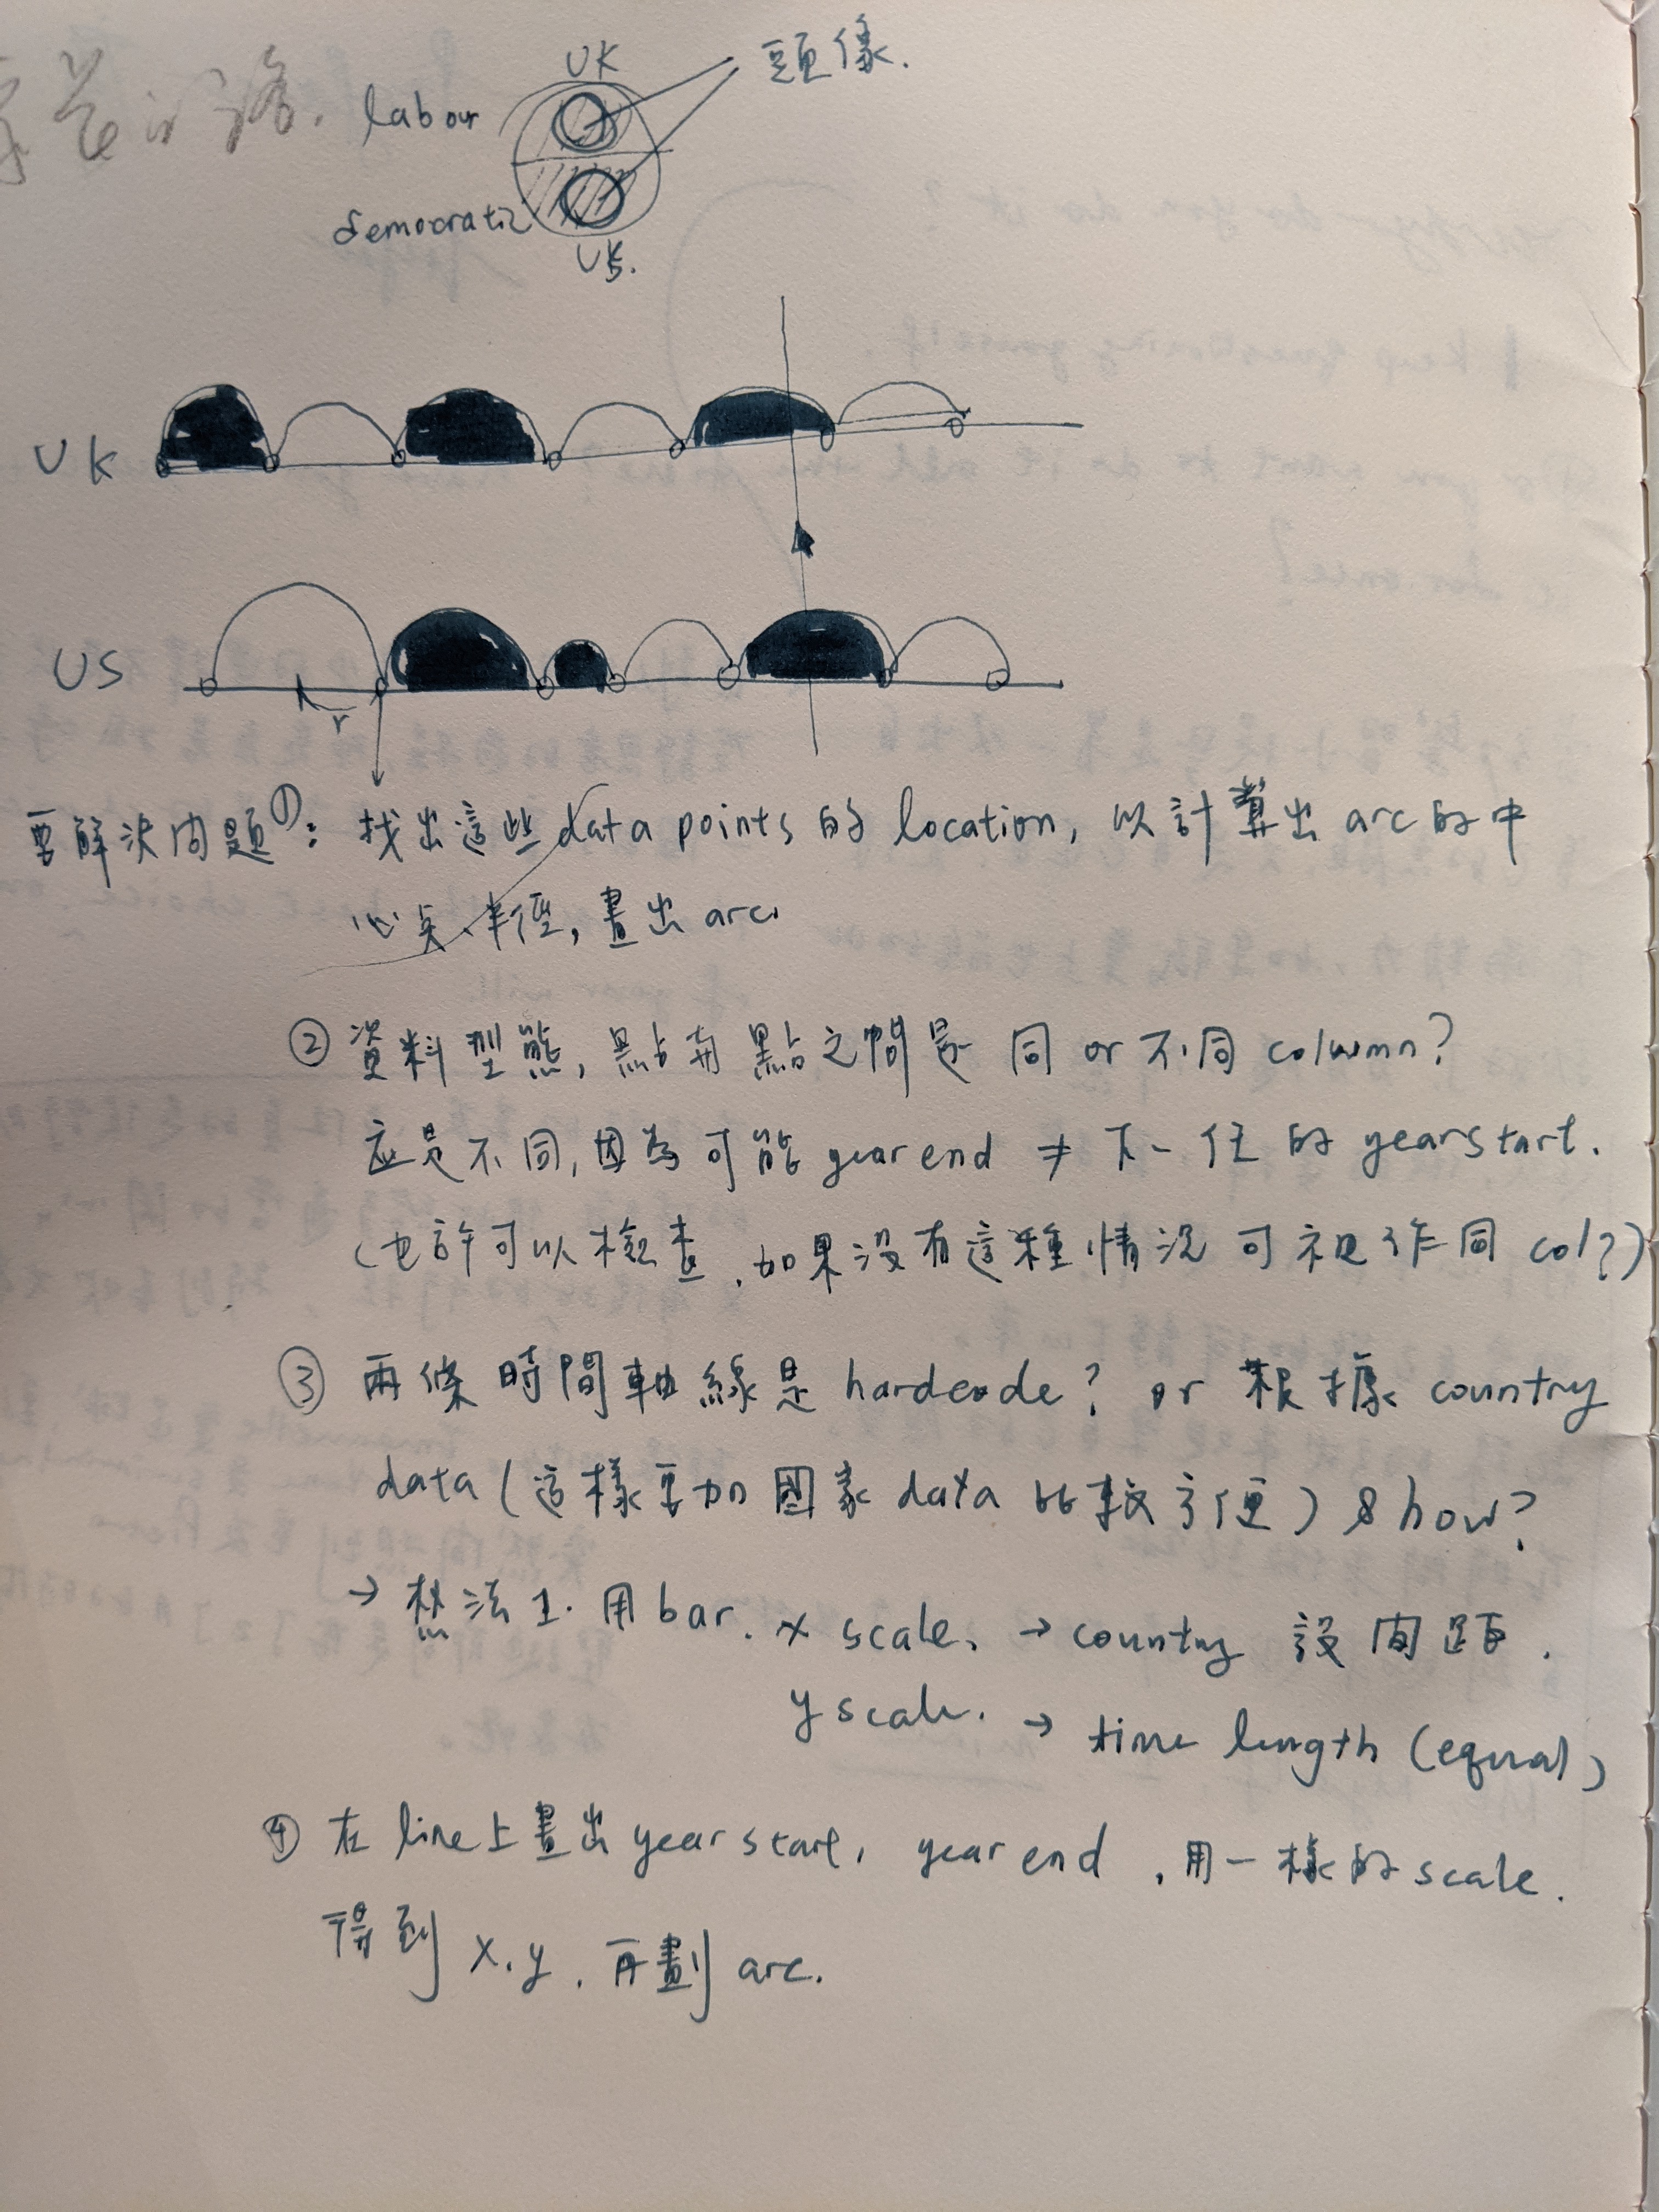 UK
頭像.
labour
democratic
US.
UK
US
r
要解決问題①: 找出這些 data points 的 location, 以計算出 arc 的中
心点、半徑, 畫出 arc.
② 資料型態, 點與點之間是 同 or 不同 column?
应是不同, 因為可能 year end ≠ 下一任 的 year start.
(也許可以檢查, 如果沒有這種情況 可視作同 col?)
③ 兩條時間軸線是 hardcode? or 根據 country
data (這樣要加國家 data 比較方便) & how?
→ 想法1. 用 bar. x scale. → country 設间距.
y scale. → time length (equal)
④ 在 line 上畫出 year start, year end, 用一樣的 scale.
得到 x.y, 再劃 arc.